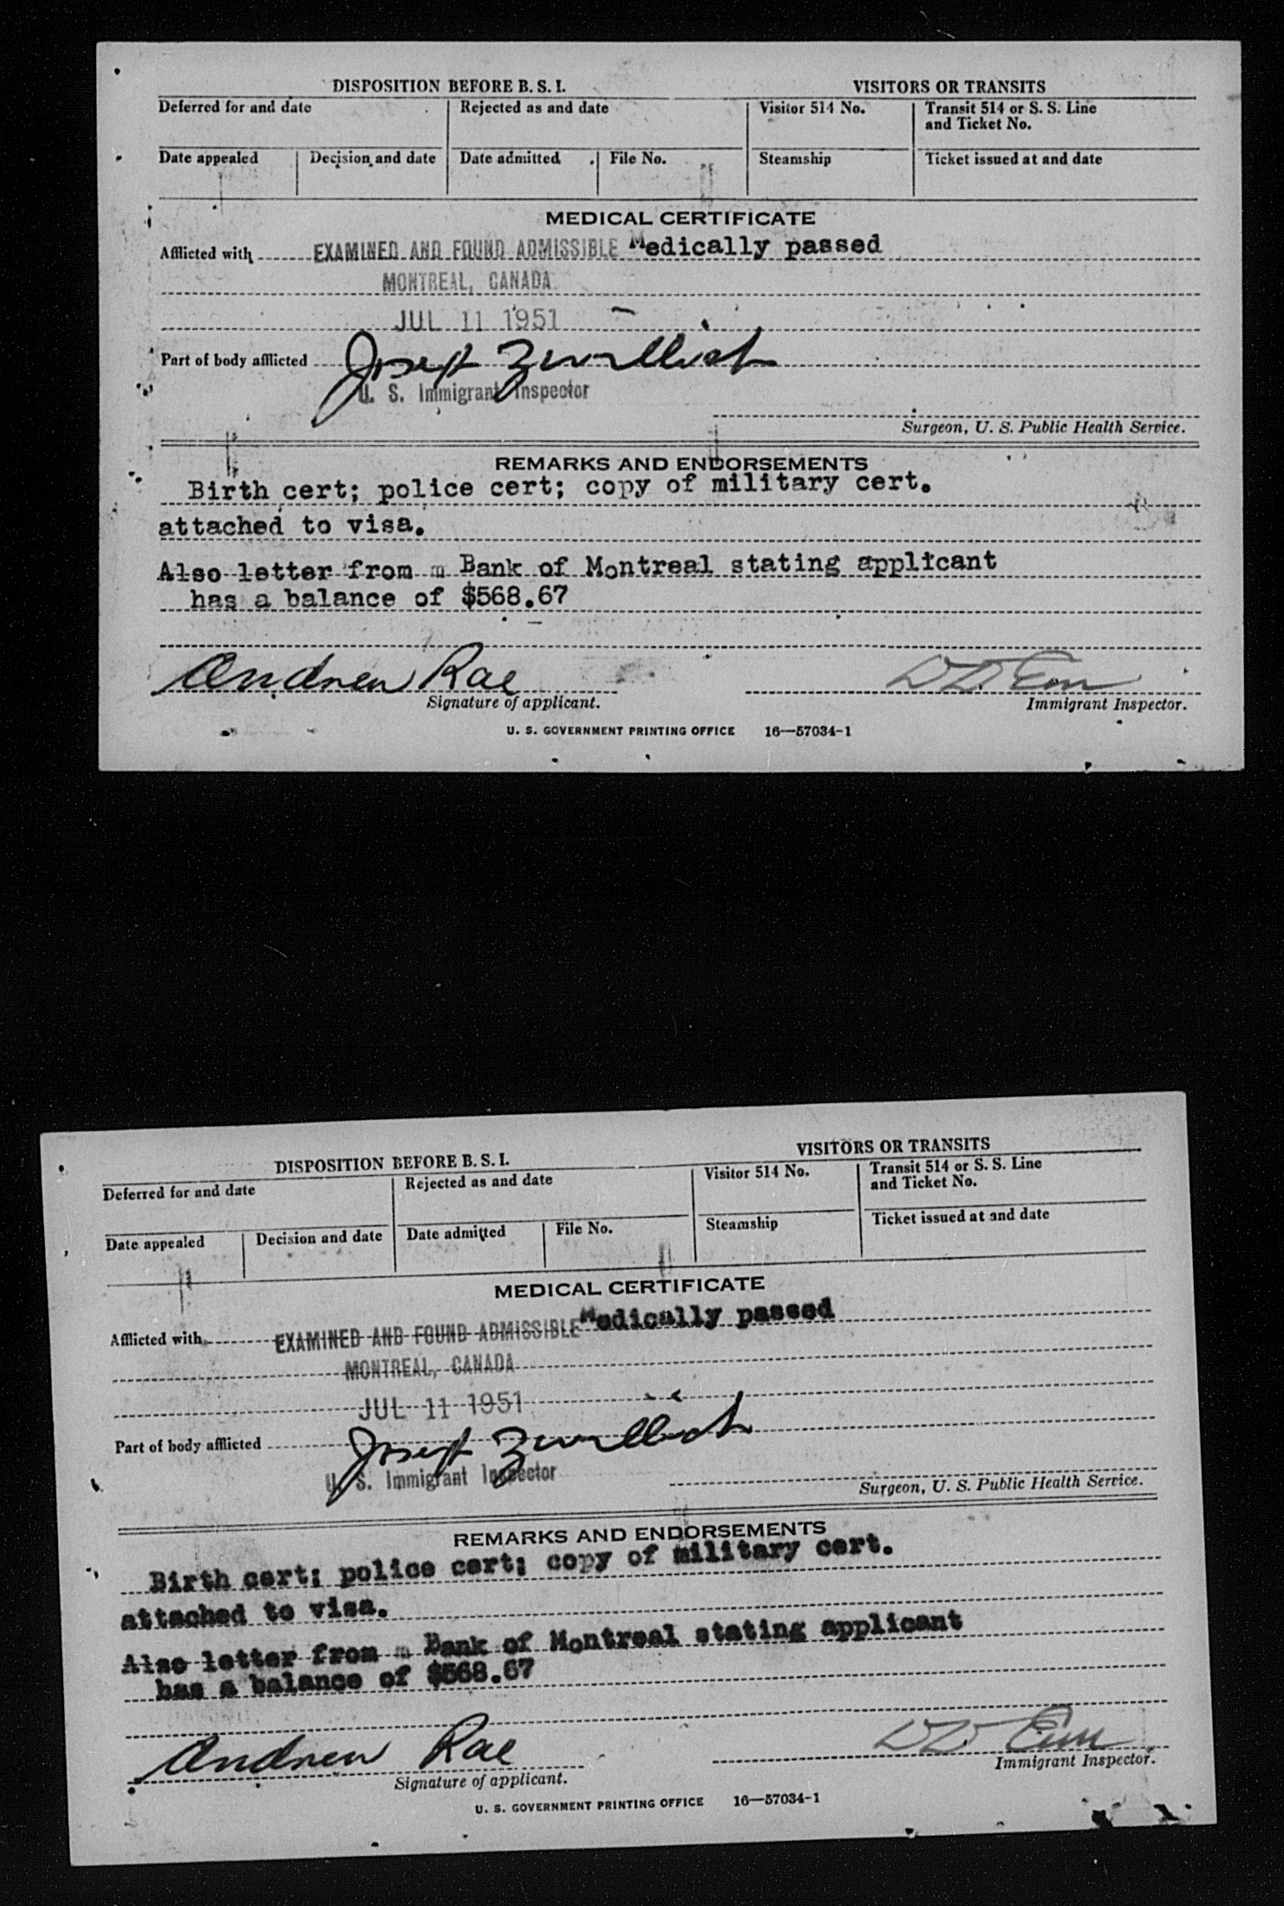 DISPOSITION BEFORE B. S. I.
VISITORS OR TRANSITS
Deferred for and date
Rejected as and date
Visitor 514 No.
Transit 514 or S. S. Line
and Ticket No.
Date appealed
Decision and date
Date admitted
File No.
Steamship
Ticket issued at and date
MEDICAL CERTIFICATE
Afflicted with EXAMINED AND FOUND ADMISSIBLE Medically passed
MONTREAL, CANADA
JUL 11 1951
Part of body afflicted Joseph
U. S. Immigrant Inspector
Surgeon, U. S. Public Health Service.
REMARKS AND ENDORSEMENTS
Birth cert; police cert; copy of military cert.
attached to visa.
Also letter from m Bank of Montreal stating applicant
has a balance of $568.67
Andrew Rae
Signature of applicant.
Immigrant Inspector.
U. S. GOVERNMENT PRINTING OFFICE 16—57034-1
DISPOSITION BEFORE B. S. I.
VISITORS OR TRANSITS
Deferred for and date
Rejected as and date
Visitor 514 No.
Transit 514 or S. S. Line
and Ticket No.
Date appealed
Decision and date
Date admitted
File No.
Steamship
Ticket issued at and date
MEDICAL CERTIFICATE
Afflicted with EXAMINED AND FOUND ADMISSIBLE Medically passed
MONTREAL, CANADA
JUL 11 1951
Part of body afflicted Joseph
U. S. Immigrant Inspector
Surgeon, U. S. Public Health Service.
REMARKS AND ENDORSEMENTS
Birth cert; police cert; copy of military cert.
attached to visa.
Also letter from m Bank of Montreal stating applicant
has a balance of $568.67
Andrew Rae
Signature of applicant.
Immigrant Inspector.
U. S. GOVERNMENT PRINTING OFFICE 16—57034-1